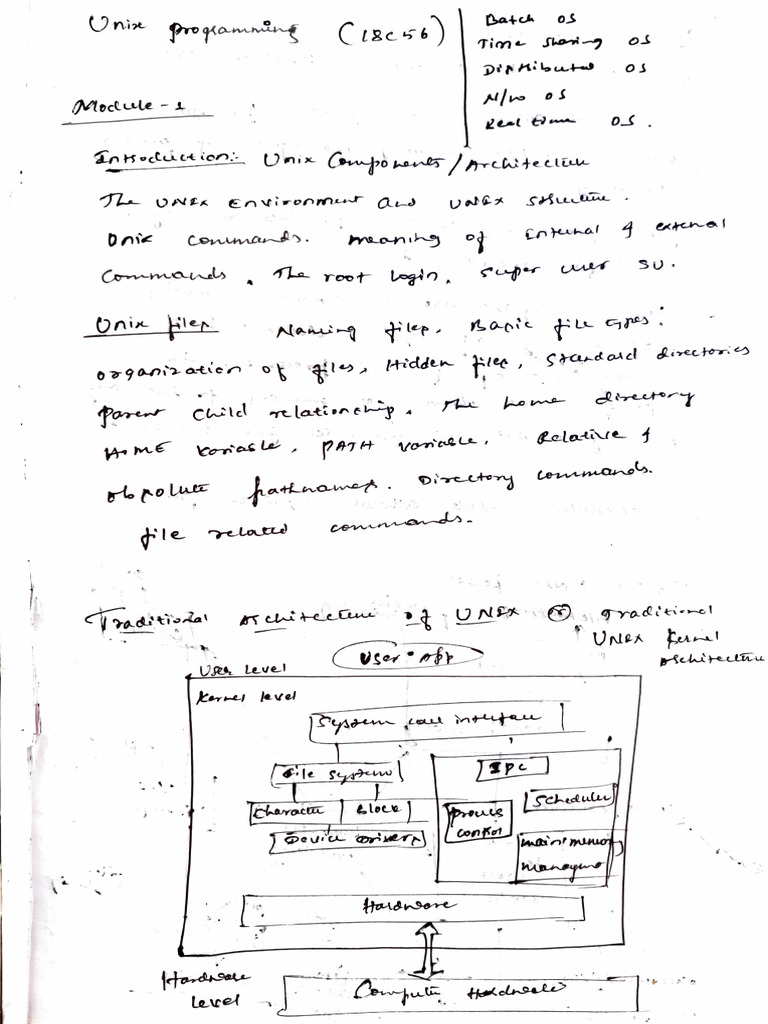 Unix programming (18CS56)
Batch OS
Time sharing OS
Distributed OS
N/w OS
Real time OS.
Module-1
Introduction: Unix Components/Architecture
The UNIX Environment and UNIX structure.
Unix commands. meaning of Internal & external
Commands. The root login. super user su.
Unix files Naming files. Basic file types.
organization of files, Hidden files, standard directories
parent child relationship. The home directory
HOME variable. PATH variable. Relative &
absolute pathnames. Directory commands.
file related commands.
Traditional Architecture of UNIX or Traditional
UNIX Kernel
Architecture
User Level
User App
Kernel level
System call interface
File system
IPC
Character
Block
Process
control
Scheduler
Device drivers
main memory
Hardware
Hardware
level
Computer Hardware